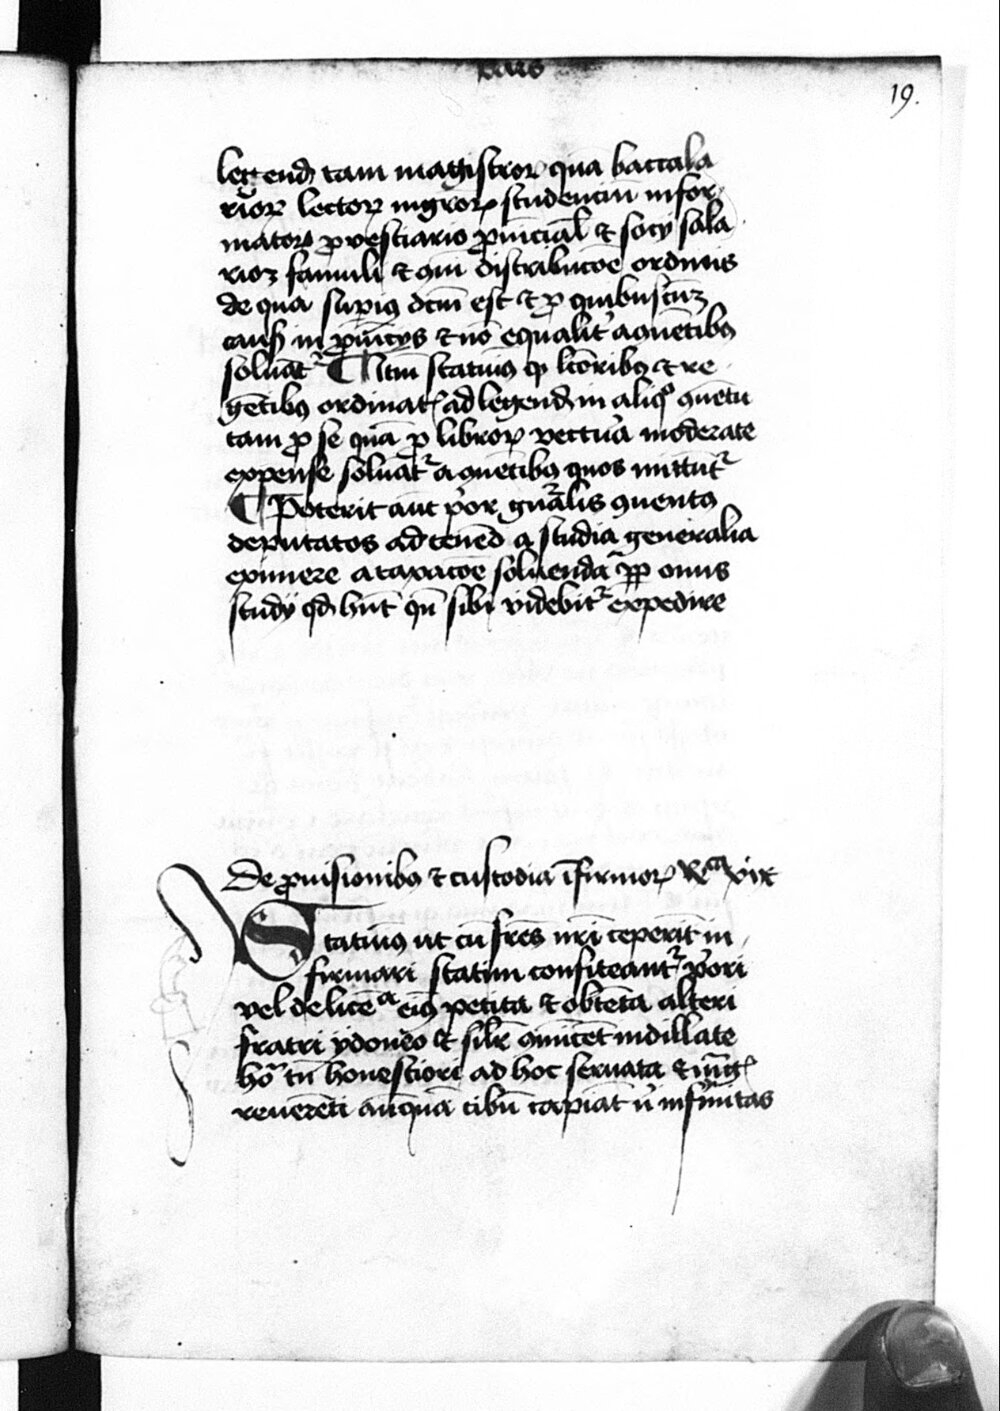 pars
19.
legend tam magistror qua baccala
rior lector nigror studenciu infor
mator p vestiario puicial et socij sala
rioz famuli et qui distribucoe ordinis
de qua supius dcm est et p quibuscuz
caus in puicijs et no equalit aquetibus
soluat Itm statuim q lcoribus et re
getibus ordinat ad legend in aliq quetu
tam p se qua p libror vectura moderate
expense soluat a quetibus quos mittut
Poterit aut por gnalis quentus
deputatos ad tenend a studia generalia
eximere a taxacoe soluenda pp onus
studij qd hnt qn sibi videbit expedire
De puisionibus et custodia ifirmor Rca xix
Statuim ut cu fres nri ceperit in
firmari statim confiteant pori
vel de licea eius petita et obteta alteri
fratri ydoneo et silr
ho tn honestiori ad hoc seruata
reuereti anqua cibu capiat infirmitas